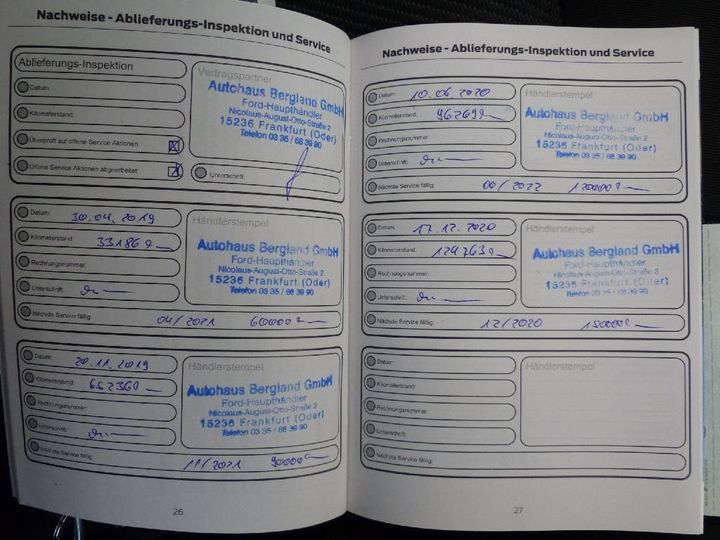 Nachweise - Ablieferungs-Inspektion und Service
Ablieferungs-Inspektion
Datum:
Kilometerstand:
Überprüft auf offene Service Aktionen: X
Offene Service Aktionen abgearbeitet: X
Vertragspartner
Autohaus Bergland GmbH
Ford-Haupthändler
Nicolaus-August-Otto-Straße 2
15236 Frankfurt (Oder)
Telefon 03 35 / 68 39 90
Unterschrift:
Datum: 30.04.2019
Kilometerstand: 33186
Rechnungsnummer:
Unterschrift:
Nächste Service fällig: 04/2021 60000
Händlerstempel
Autohaus Bergland GmbH
Ford-Haupthändler
Nicolaus-August-Otto-Straße 2
15236 Frankfurt (Oder)
Telefon 03 35 / 68 39 90
Datum: 20.11.2019
Kilometerstand: 65236
Rechnungsnummer:
Unterschrift:
Nächste Service fällig: 11/2021 90000
Händlerstempel
Autohaus Bergland GmbH
Ford-Haupthändler
Nicolaus-August-Otto-Straße 2
15236 Frankfurt (Oder)
Telefon 03 35 / 68 39 90
26
Nachweise - Ablieferungs-Inspektion und Service
Datum: 10.06.2020
Kilometerstand: 96269
Rechnungsnummer:
Unterschrift:
Nächste Service fällig: 06/2022 120000
Händlerstempel
Autohaus Bergland GmbH
Ford-Haupthändler
Nicolaus-August-Otto-Straße 2
15236 Frankfurt (Oder)
Telefon 03 35 / 68 39 90
Datum: 17.12.2020
Kilometerstand: 124763
Rechnungsnummer:
Unterschrift:
Nächste Service fällig: 12/2020 150000
Händlerstempel
Autohaus Bergland GmbH
Ford-Haupthändler
Nicolaus-August-Otto-Straße 2
15236 Frankfurt (Oder)
Telefon 03 35 / 68 39 90
Datum:
Kilometerstand:
Rechnungsnummer:
Unterschrift:
Nächste Service fällig:
Händlerstempel
27